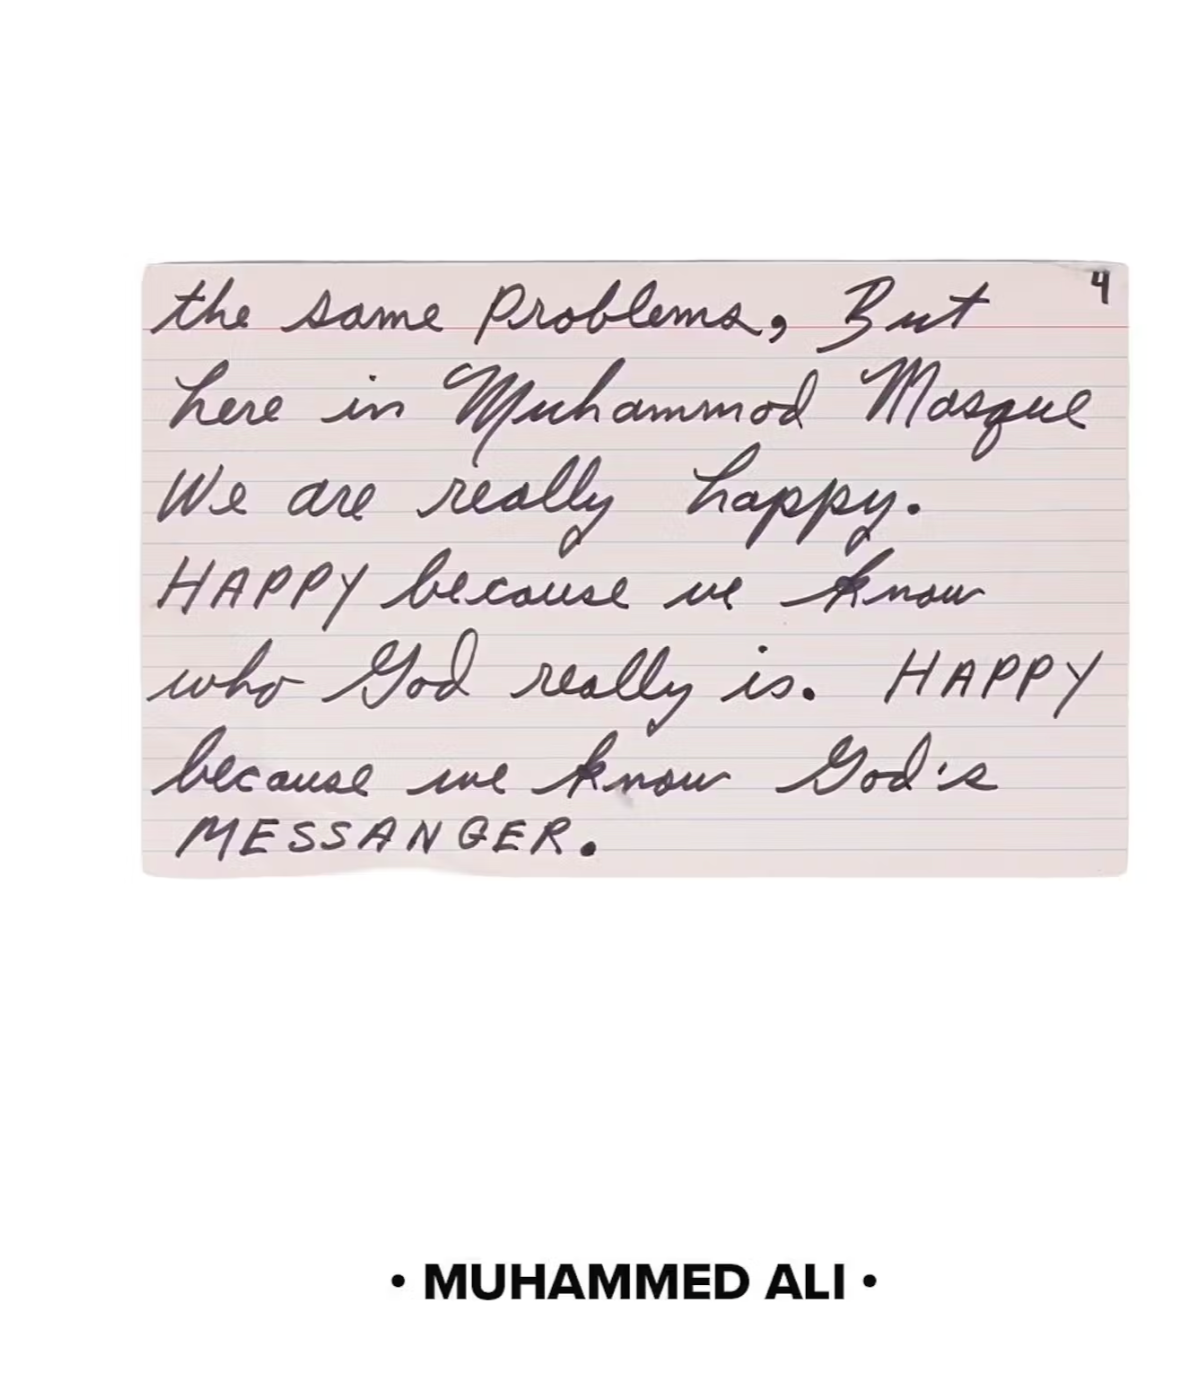 4
the same Problems, But
here in Muhammod Mosque
We are really happy.
HAPPY because we know
who God really is. HAPPY
because we know God's
MESSANGER.
• MUHAMMED ALI •